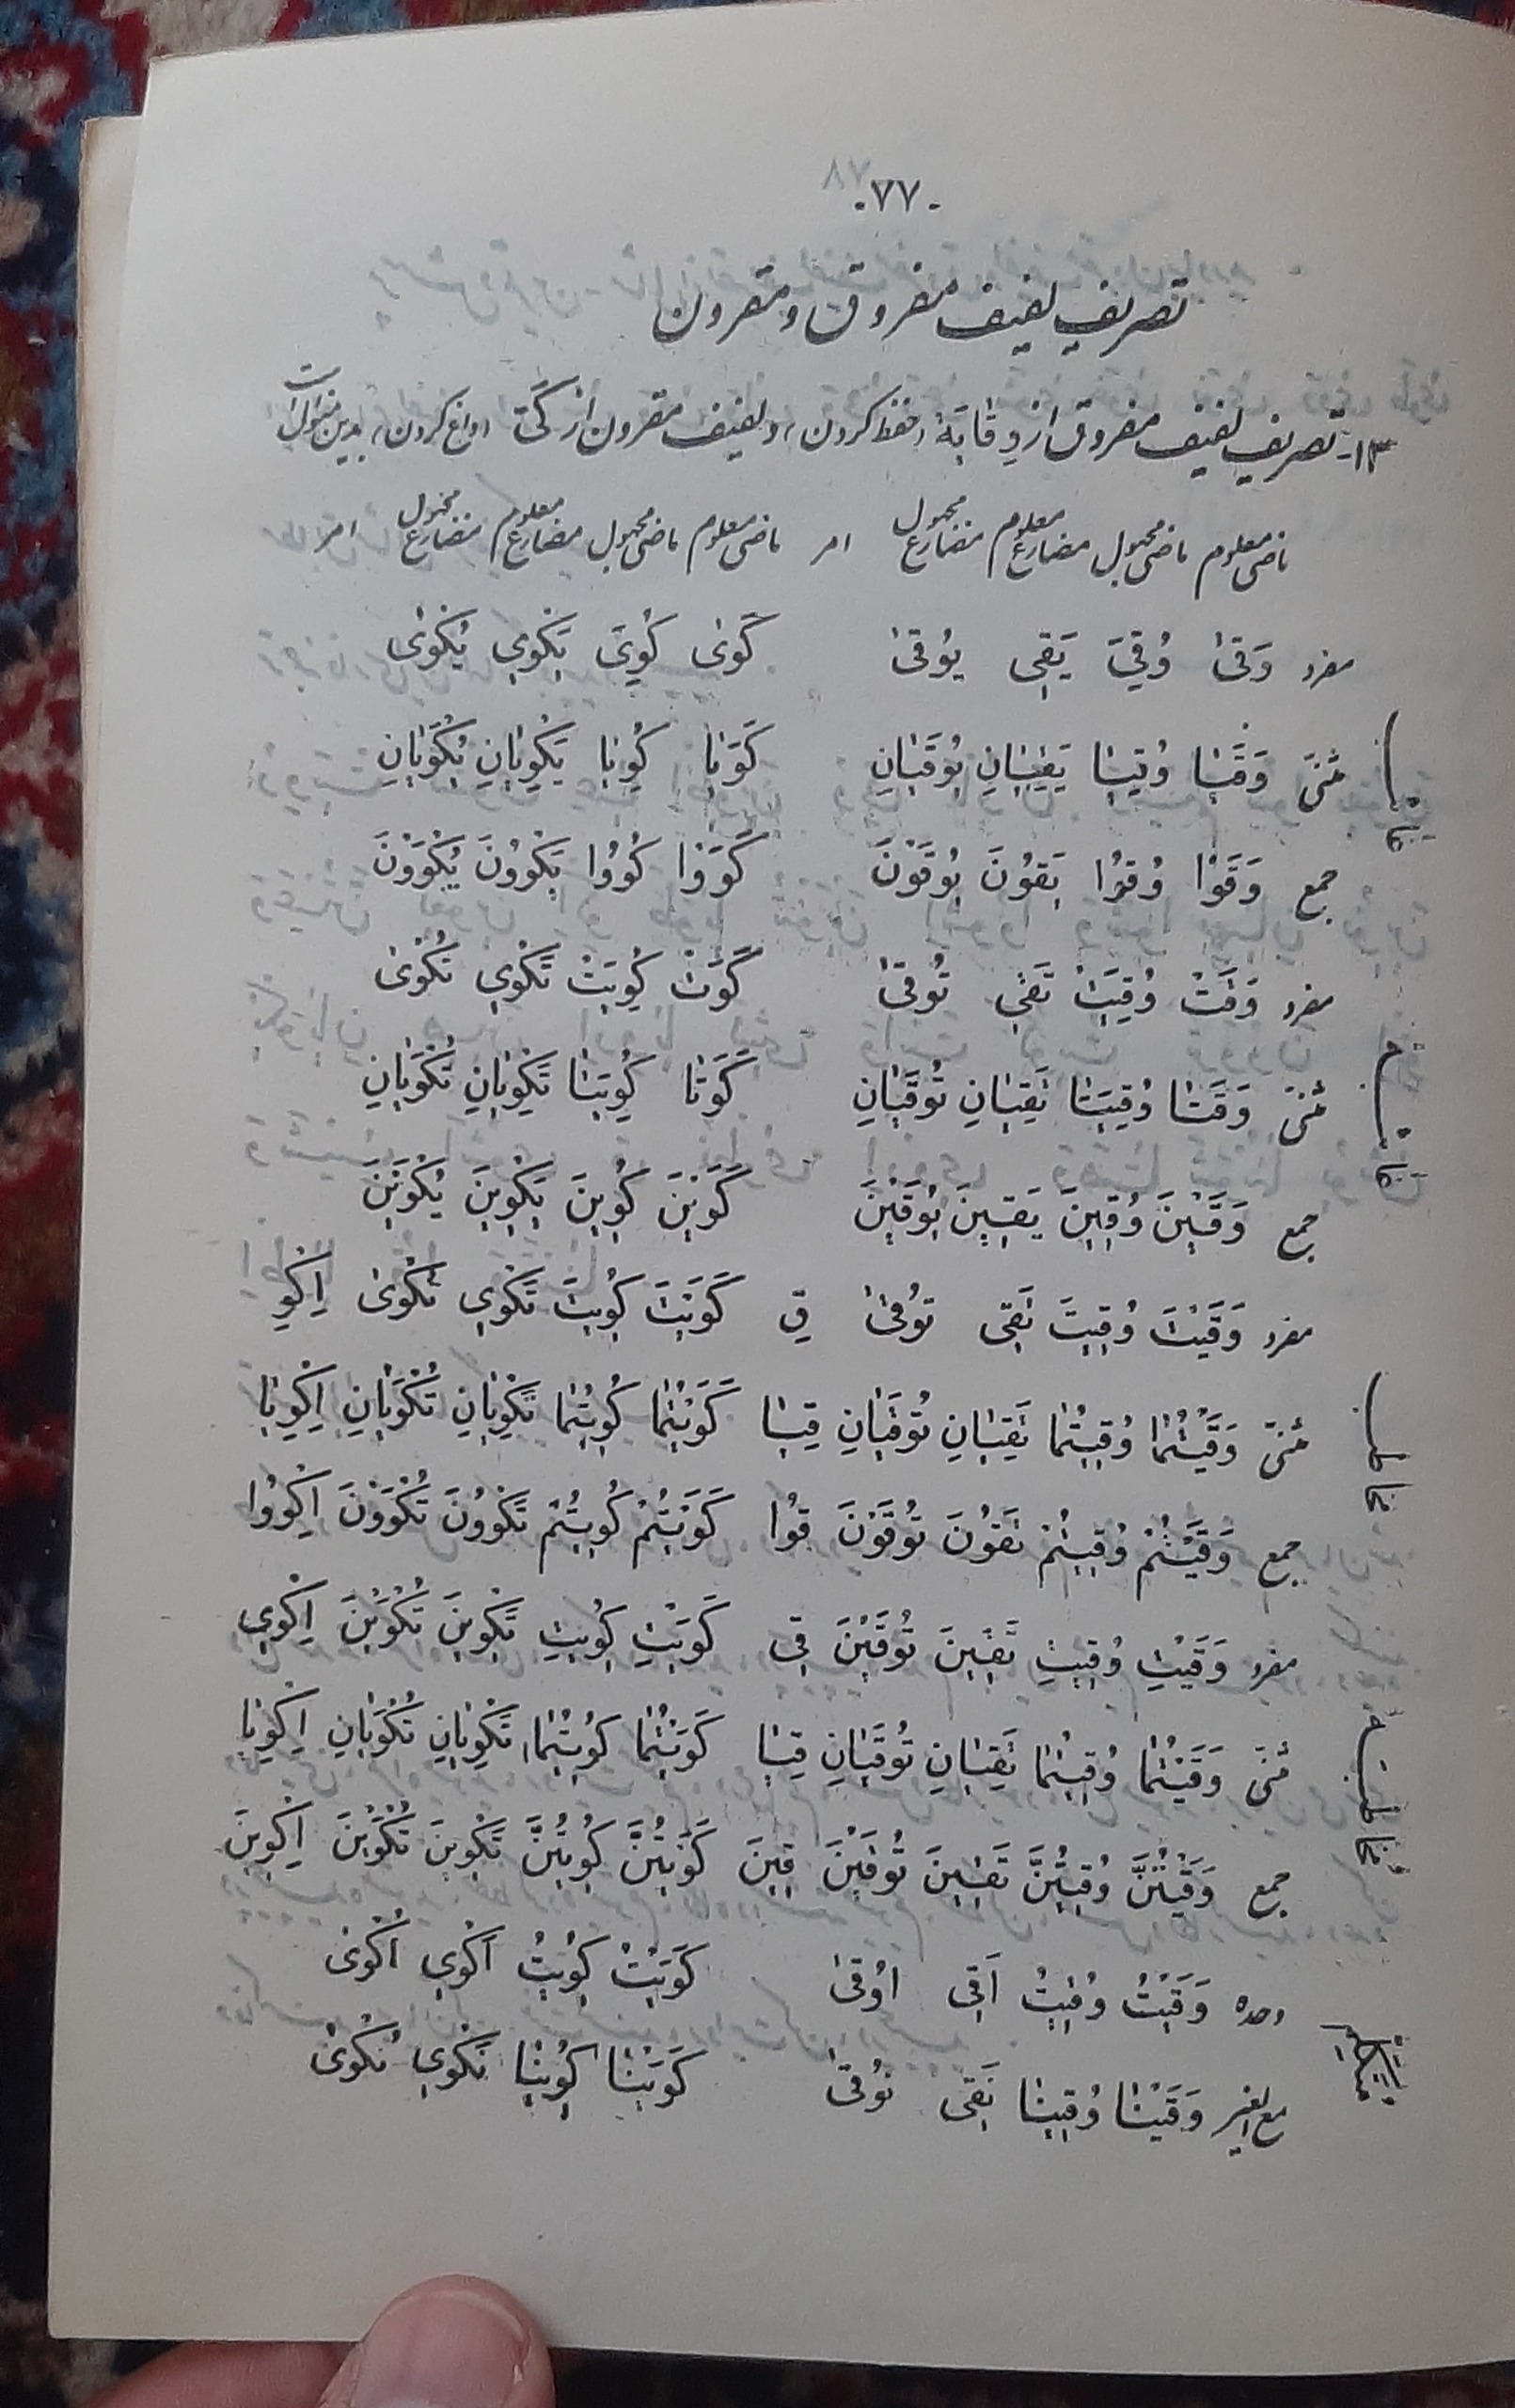 -۷۷-
تصریف لفیف مفروق و مقرون
۱۳- تصریف لفیف مفروق از وِقایَة (حفظ کردن) و لفیف مقرون از کَیّ (داغ کردن) بدین منوال است
ماضی معلوم ماضی مجهول مضارع معلوم مضارع مجهول امر ماضی معلوم ماضی مجهول مضارع معلوم مضارع مجهول امر
مفرد وَقیٰ وُقِیَ یَقِی یُوقیٰ کَویٰ کُوِیَ یَکْوِی یُکْویٰ
غایب
مثنّی وَقَیٰا وُقِیٰا یَقِیٰانِ یُوقَیٰانِ کَوَیٰا کُوِیٰا یَکْوِیٰانِ یُکْوَیٰانِ
جمع وَقَوْا وُقُوا یَقُونَ یُوقَوْنَ کَوَوْا کُوُوا یَکْوُونَ یُکْوَوْنَ
مفرد وَقَتْ وُقِیَتْ تَقِی تُوقیٰ کَوَتْ کُوِیَتْ تَکْوِی تُکْویٰ
غایبه
مثنّی وَقَتٰا وُقِیَتٰا تَقِیٰانِ تُوقَیٰانِ کَوَتٰا کُوِیَتٰا تَکْوِیٰانِ تُکْوَیٰانِ
جمع وَقَیْنَ وُقِینَ یَقِینَ یُوقَیْنَ کَوَیْنَ کُوِینَ یَکْوِینَ یُکْوَیْنَ
مفرد وَقَیْتَ وُقِیتَ تَقِی تُوقیٰ قِ کَوَیْتَ کُوِیتَ تَکْوِی تُکْویٰ اِکْوِ
مخاطب
مثنّی وَقَیْتُمٰا وُقِیتُمٰا تَقِیٰانِ تُوقَیٰانِ قِیٰا کَوَیْتُمٰا کُوِیتُمٰا تَکْوِیٰانِ تُکْوَیٰانِ اِکْوِیٰا
جمع وَقَیْتُمْ وُقِیتُمْ تَقُونَ تُوقَوْنَ قُوا کَوَیْتُمْ کُوِیتُمْ تَکْوُونَ تُکْوَوْنَ اِکْوُوا
مفرد وَقَیْتِ وُقِیتِ تَقِینَ تُوقَیْنَ قِی کَوَیْتِ کُوِیتِ تَکْوِینَ تُکْوَیْنَ اِکْوِی
مخاطبه
مثنّی وَقَیْتُمٰا وُقِیتُمٰا تَقِیٰانِ تُوقَیٰانِ قِیٰا کَوَیْتُمٰا کُوِیتُمٰا تَکْوِیٰانِ تُکْوَیٰانِ اِکْوِیٰا
جمع وَقَیْتُنَّ وُقِیتُنَّ تَقِینَ تُوقَیْنَ قِینَ کَوَیْتُنَّ کُوِیتُنَّ تَکْوِینَ تُکْوَیْنَ اِکْوِینَ
وحده وَقَیْتُ وُقِیتُ اَقِی اُوقیٰ کَوَیْتُ کُوِیتُ اَکْوِی اُکْویٰ
مع الغیر وَقَیْنٰا وُقِینٰا نَقِی نُوقیٰ کَوَیْنٰا کُوِینٰا نَکْوِی نُکْویٰ